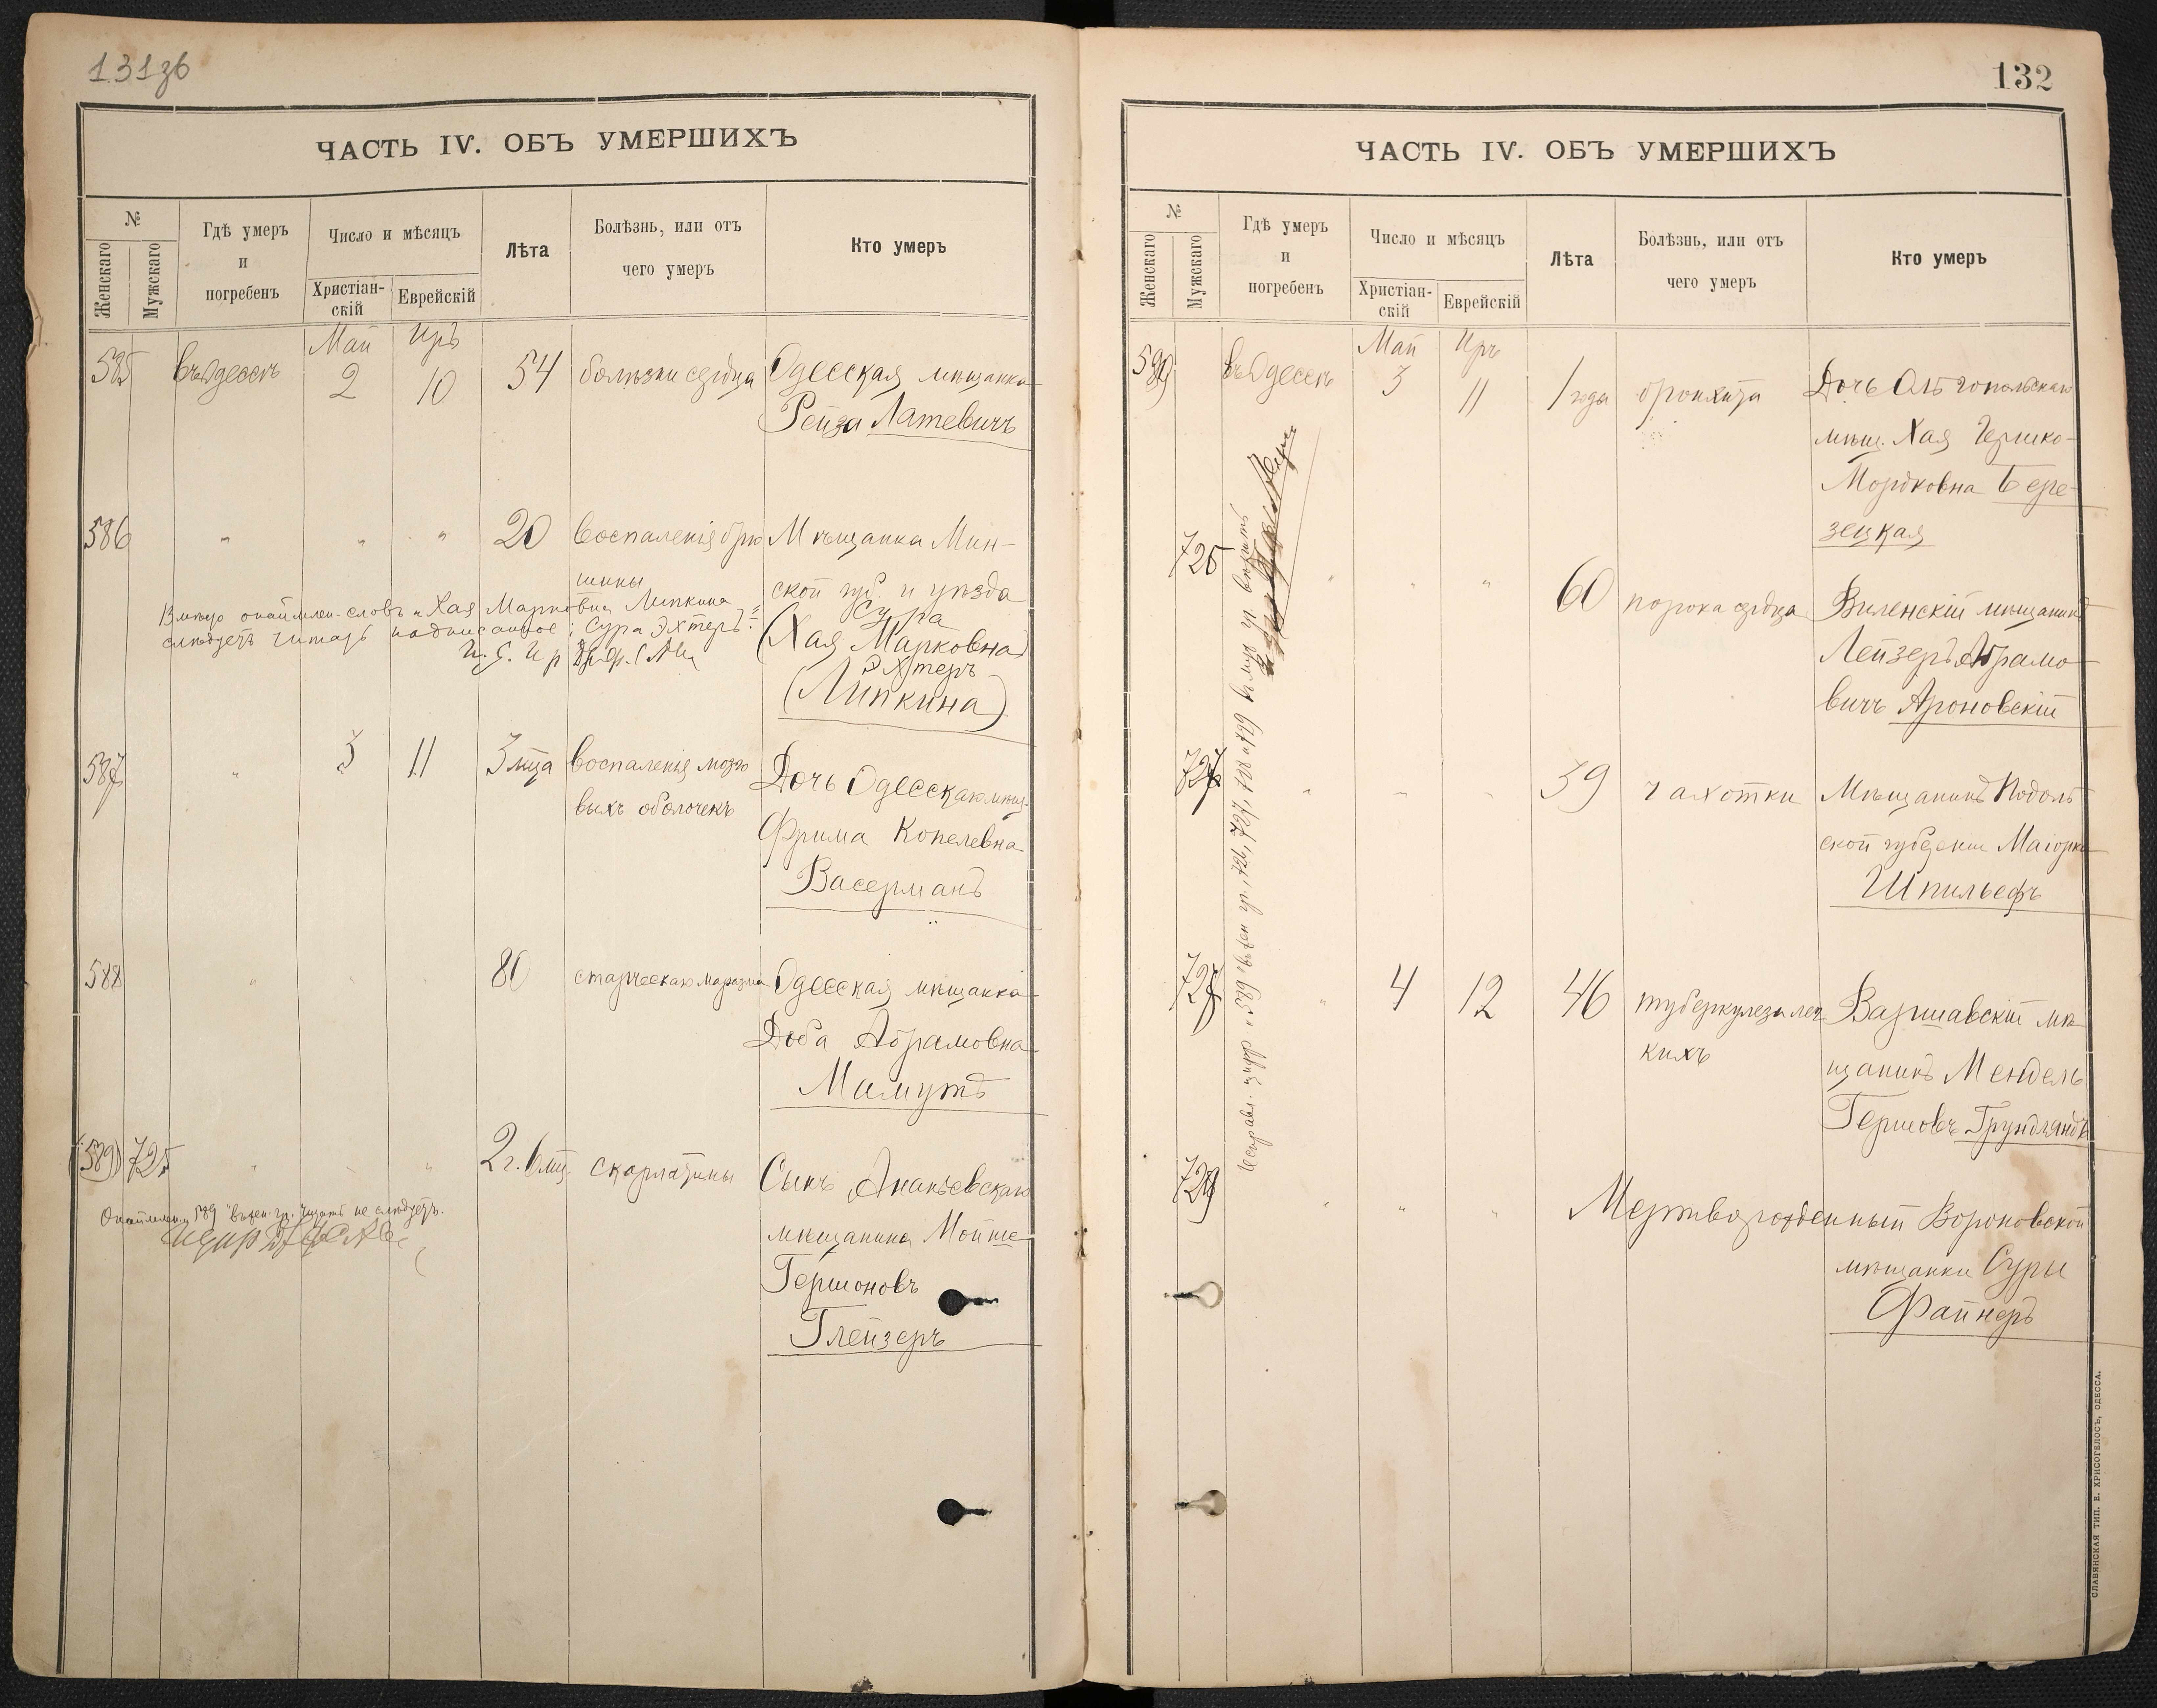 131зб
ЧАСТЬ IV. ОБЪ УМЕРШИХЪ
№
Женскаго
Мужскаго
Гдѣ умеръ
и
погребенъ
Число и мѣсяцъ
Христіан-
скій
Еврейскій
Лѣта
Болѣзнь, или отъ
чего умеръ
Кто умеръ
Май Иръ
585 въ Одессѣ 2 10 54 болѣзни сердца Одесская мѣщанка
Рейза Латевичъ
586 " " " 20 воспаленія брю Мѣщанка Мин-
шины ской губ. и уѣзда
Вмѣсто окаймлен. словъ "Хая Марковна Липкина"
слѣдуетъ читать надписанное: Сура Эхтеръ
Сура
(Хая Марковна)
Эхтеръ
(Липкина)
587 " 3 11 3 мца воспаленія мозго Дочь Одесскаго мѣщ.
выхъ оболочекъ Фрима Копелевна
Васерманъ
588 " " " 80 старческаго маразма Одесская мѣщанка
Доба Абрамовна
Мамутъ
(589) 725 " " " 2 г. 6 мц. скарлатины Сынъ Ананьевскаго
Окаймлен. "589" въ жен. гр. читать не слѣдуетъ.
мѣщанина Мойше
Гершоновъ
Глейзеръ
132
ЧАСТЬ IV. ОБЪ УМЕРШИХЪ
№
Женскаго
Мужскаго
Гдѣ умеръ
и
погребенъ
Число и мѣсяцъ
Христіан-
скій
Еврейскій
Лѣта
Болѣзнь, или отъ
чего умеръ
Кто умеръ
Май Иръ
589 въ Одессѣ 3 11 1 года бронхита Дочь Ольгопольскаго
мѣщ. Хая Гершко-
Мордковна Бере-
зецкая
726 " " " 60 порока сердца Виленскій мѣщанинъ
Лейзеръ Абрамо-
вичъ Ароновскій
727 " " " 39 чахотки Мѣщанинъ Подоль
ской губерніи Маіорко
Шпильефъ
728 " 4 12 46 туберкулеза лег Варшавскій мѣ
кихъ щанинъ Мендель
Гершовъ Грундляндъ
729 " " " Мертворожденный Вороновской
мѣщанки Суры
Файнеръ
Исправл. цифр. "589" въ жен. гр., 726, 727, 728 и 729 въ муж. гр. вѣрить
СЛАВЯНСКАЯ ТИП. Е. ХРИСОГЕЛОСЪ, ОДЕССА.